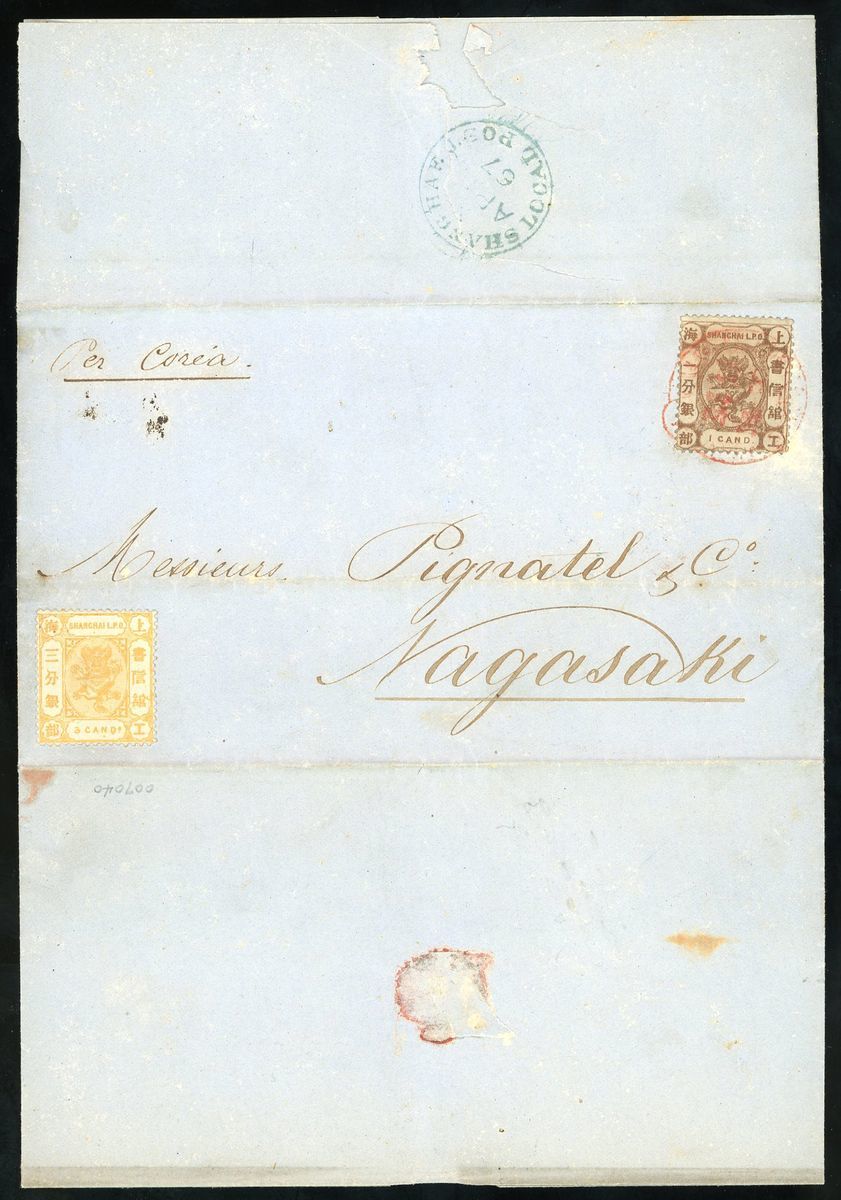 SHANGHAE LOCAL POST
67
Per Coréa.
SHANGHAI L.P.O.
上海
工部
書信館
一分銀
1 CAND.
Messieurs. Pignatel & Co.
Nagasaki
SHANGHAI L.P.O.
上海
工部
書信館
三分銀
3 CANDS
007040